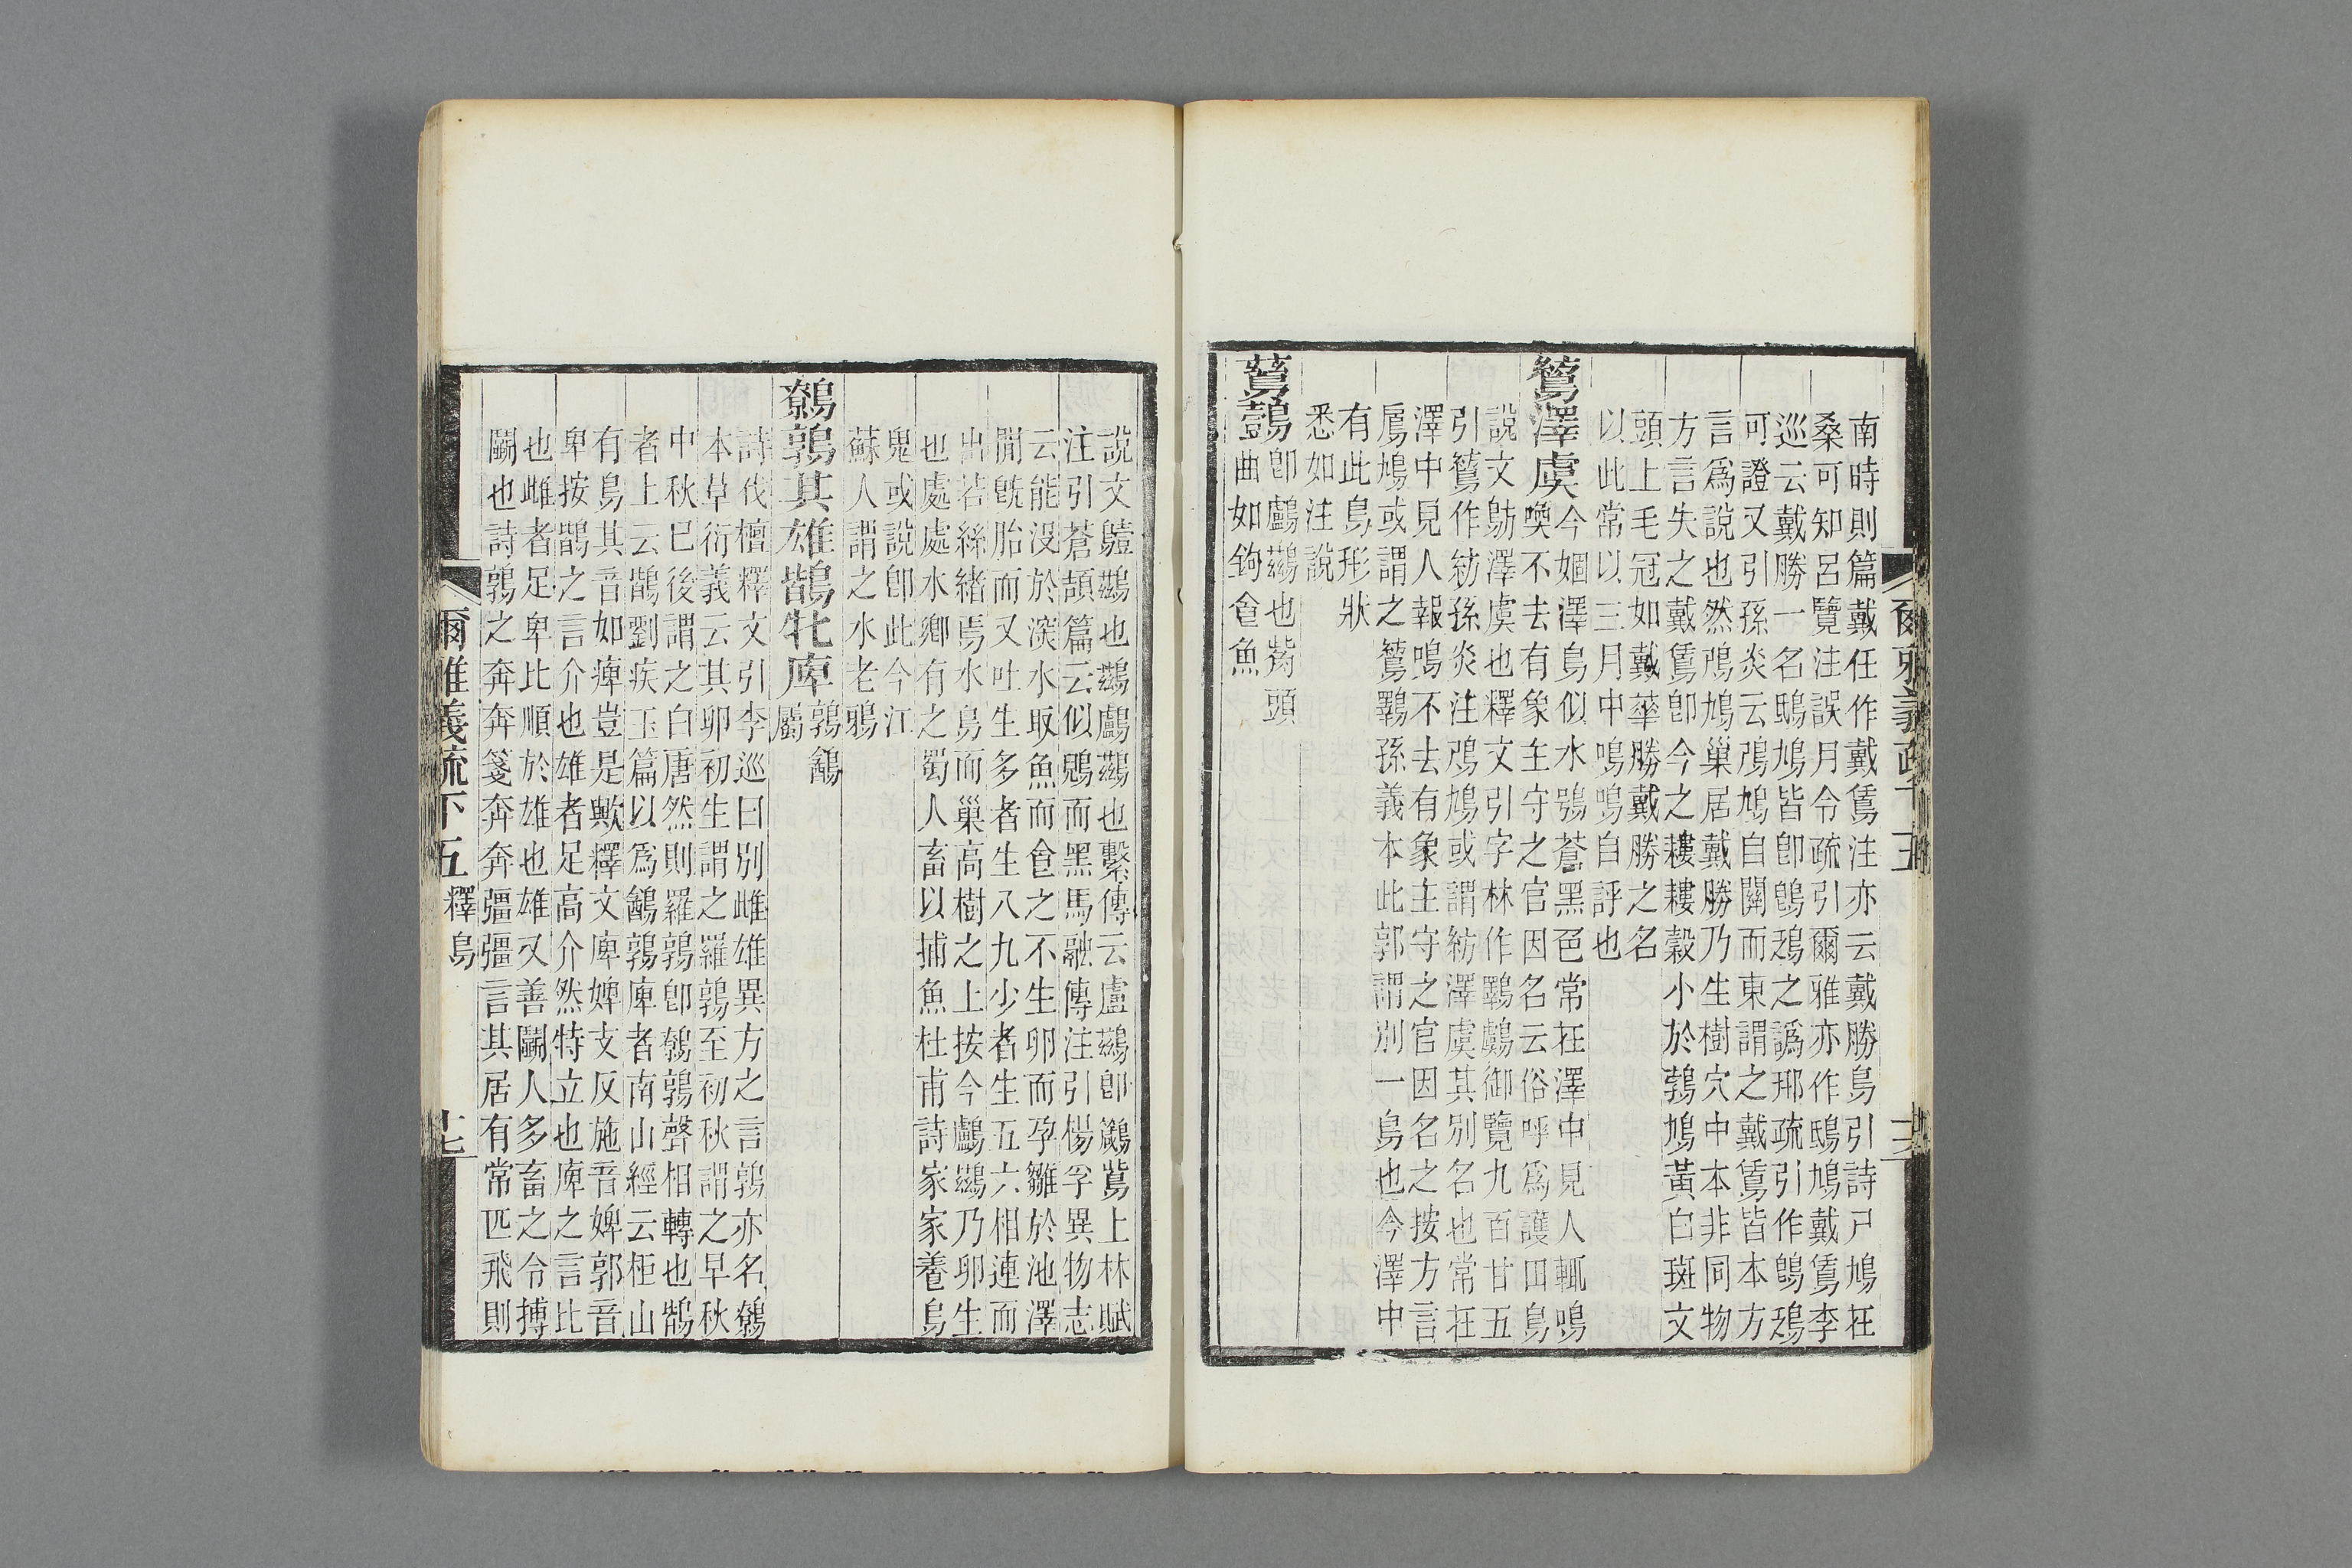 南時則篇戴任作戴鵀注亦云戴勝鳥引詩尸鳩在
桑可知呂覽注誤月令疏引爾雅亦作鴟鳩戴鵀李
巡云戴勝一名鴟鳩皆卽鶛鵖之譌邢疏引作鶛鵖
可證又引孫炎云鳲鳩自關而東謂之戴鵀皆本方
言爲說也然鳲鳩巢居戴勝乃生樹穴中本非同物
方言失之戴鵀卽今之耬耬穀小於鵓鳩黃白斑文
頭上毛冠如戴華勝戴勝之名
以此常以三月中鳴鳴自評也
鶭澤虞
今婟澤鳥似水鴞蒼黑色常在澤中見人輒鳴
喚不去有象主守之官因名云俗呼爲護田鳥
說文鶭澤虞也釋文引字林作鸅鸆御覽九百廿五
引鶭作紡孫炎注鳲鳩或謂紡澤虞其別名也常在
澤中見人報鳴不去有象主守之官因名之按方言
鳸鳩或謂之鶭鸅孫義本此郭謂別一鳥也今澤中
有此鳥形狀
悉如注說
鶿鷧
卽鸕鷀也觜頭
曲如鉤食魚
說文鷧鷀也鷀鸕鷀也繫傳云盧鷀卽鸕鶿上林賦
注引蒼頡篇云似鶂而黑馬融傳注引楊孚異物志
云能沒於深水取魚而食之不生卵而孕雛於池澤
閒旣胎而又吐生多者生八九少者生五六相連而
出若絲緒焉水鳥而巢高樹之上按今鸕鷀乃卵生
也處處水鄉有之蜀人畜以捕魚杜甫詩家家養烏
鬼或說卽此今江
蘇人謂之水老鴉
鷯鶉其雄鶛牝庳
鶉䳺
屬
詩伐檀釋文引李巡曰別雌雄異方之言鶉亦名鷯
本草衍義云其卵初生謂之羅鶉至初秋謂之早秋
中秋已後謂之白唐然則羅鶉卽鷯鶉聲相轉也鶛
者上云鶛劉疾玉篇以爲䳺鶉庳者南山經云柜山
有鳥其音如痺豈是歟釋文庳婢支反施音婢郭音
卑按鶛之言介也雄者足高介然特立也庳之言比
也雌者足卑比順於雄也雄又善鬭人多畜之令搏
鬭也詩鶉之奔奔箋奔奔彊彊言其居有常匹飛則
爾雅義疏下五 釋鳥 十七